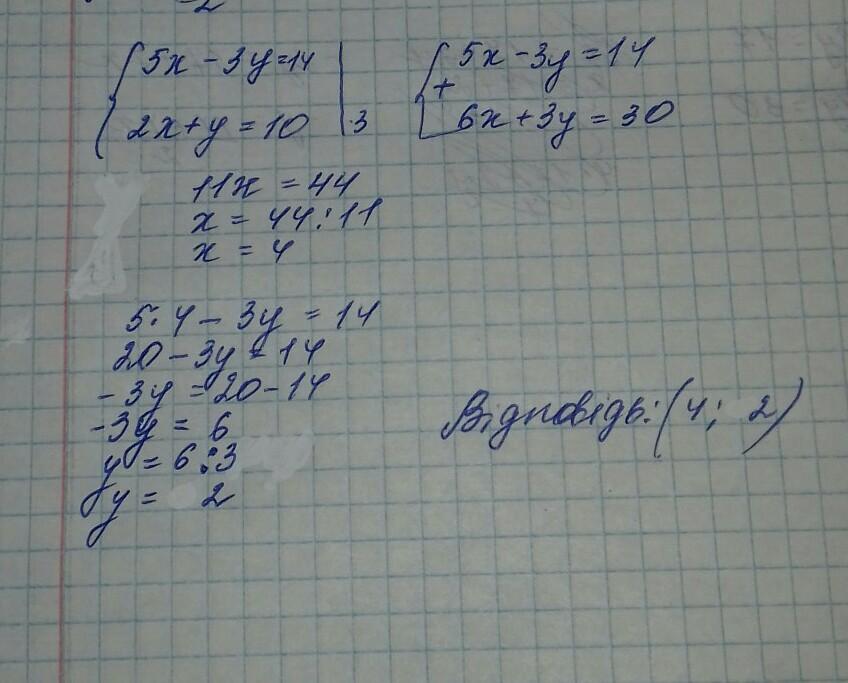 -2
5x - 3y = 14
2x + y = 10 | ·3
5x - 3y = 14
+
6x + 3y = 30
11x = 44
x = 44 : 11
x = 4
5 · 4 - 3y = 14
20 - 3y = 14
-3y = 20 - 14
-3y = 6
y = 6 : 3
y = 2
Відповідь: (4; 2)